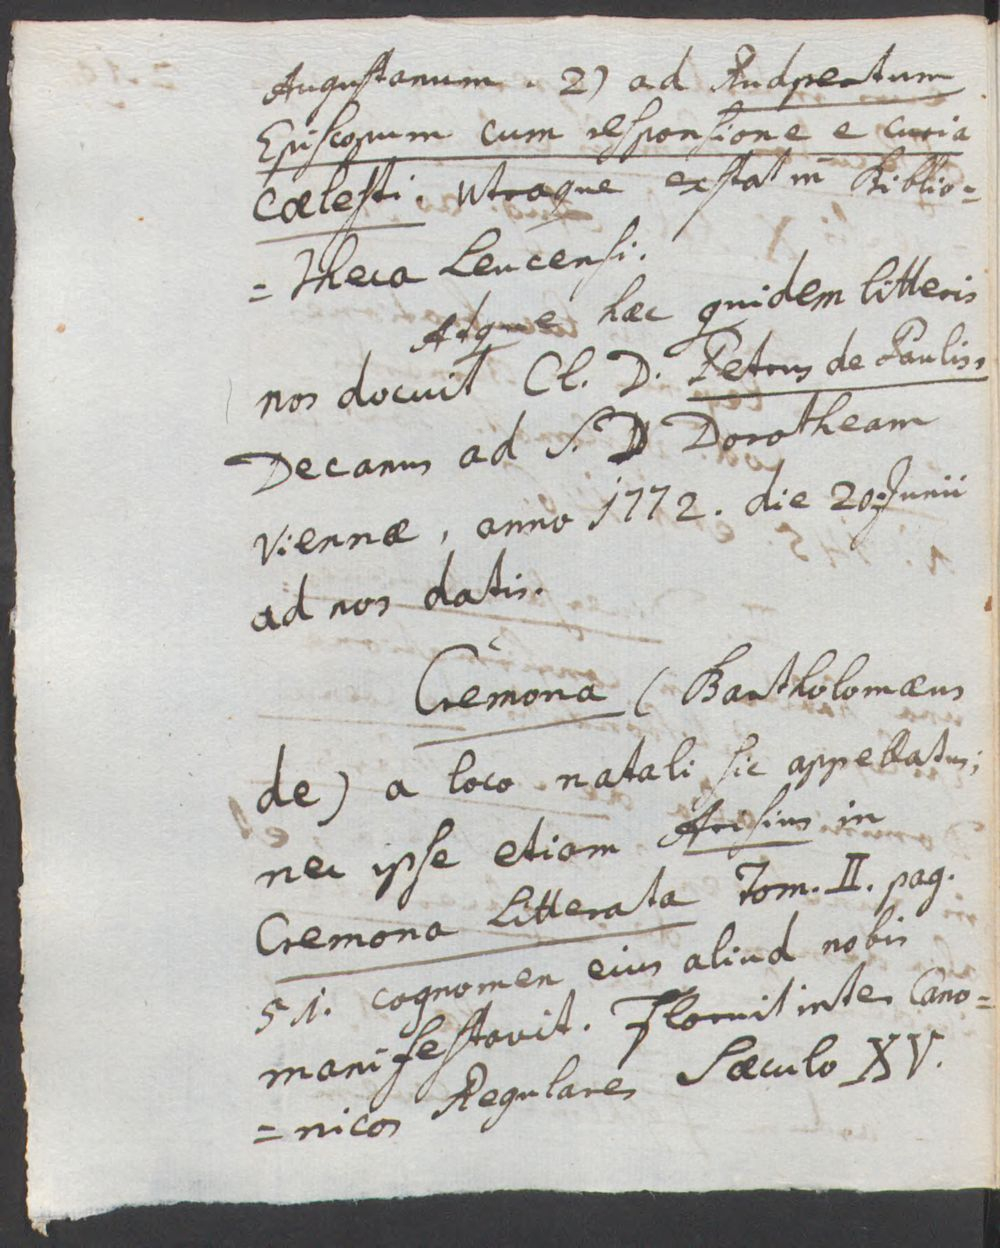 Augustanum. 2) ad Rudpertum
Episcopum cum responsione e curia
Cœlesti. Utraque exstat in Biblio=
=theca Leucensi.
Atque hæc quidem litteris
nos docuit Cl. D. Petrus de Paulis,
Decanus ad S. D Dorotheam
Viennæ, anno 1772. die 20. Junii
ad nos datis.
Cremona (Bartholomæus
de) a loco natali sic appellatus;
nec ipse etiam Arisius in
Cremona Litterata Tom. II. pag.
51. cognomen eius aliud nobis
manifestavit. Floruit inter Cano=
=nicos Regulares Sæculo XV.